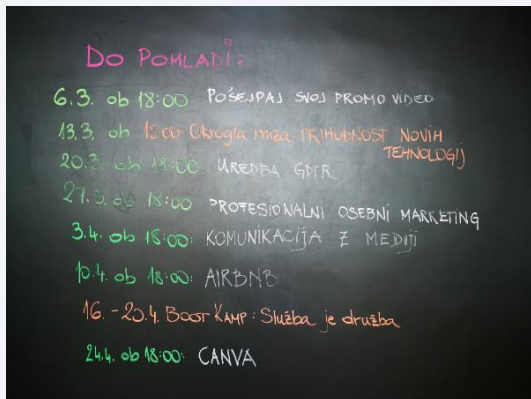 DO POMLADI:
6.3. ob 18:00 POŠEJPAJ SVOJ PROMO VIDEO
13.3. ob 12:00 Okrogla miza PRIHODNOST NOVIH
TEHNOLOGIJ
20.3. ob 18:00 UREDBA
27.3. ob 18:00 PROFESIONALNI OSEBNI MARKETING
3.4. ob 18:00: KOMUNIKACIJA Z MEDIJI
10.4. ob 18:00: AIRBNB
16. - 20.4. BOOT KAMP: Služba je družba
24.4. ob 18:00: CANVA